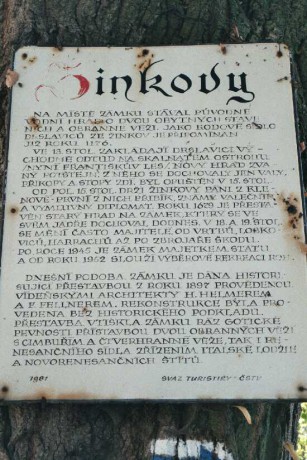 Žinkovy
NA MÍSTĚ ZÁMKU STÁVAL PŮVODNĚ
VODNÍ HRAD O DVOU OBYTNÝCH STAVE
NÍCH A OBRANNÉ VĚŽI. JAKO RODOVÉ SÍDLO
DRSLAVICŮ ZE ŽINKOV JE PŘIPOMÍNÁN
JIŽ ROKU 1176.
VE 13. STOL. ZAKLÁDAJÍ DRSLAVICI VÝ-
CHODNĚ ODTUD NA SKALNATÉM OSTROHU
/NYNÍ FRANTIŠKŮV LES/ NOVÝ HRAD ZVA
NÝ POTŠTEJN. Z NĚHO SE DOCHOVALY JEN VALY,
PŘÍKOPY A STOPY ZDÍ. BYL OPUŠTĚN V 15. STOL.
OD POL. 15. STOL. DRŽÍ ŽINKOVY PÁNI Z KLE
NOVÉ-PRVNÍ Z NICH PŘIBÍK, ZNÁMÝ VÁLEČNÍK
A VÝMLUVNÝ DIPLOMAT. ROKU 1679 JE PŘESTA
VĚN STARÝ HRAD NA ZÁMEK, KTERÝ SE VE
SVÉM JÁDŘE DOCHOVAL DODNES. V 18. A 19. STOL.
SE MĚNÍ ČASTO MAJITELÉ, OD VRTBŮ, LOBKO-
VICŮ, HARRACHŮ AŽ PO ZBROJAŘE ŠKODU.
PO ROCE 1945 JE ZÁMEK MAJETKEM STÁTU
A OD ROKU 1952 SLOUŽÍ VÝBĚROVÉ REKREACI ROH.
DNEŠNÍ PODOBA ZÁMKU JE DÁNA HISTORI
SUJÍCÍ PŘESTAVBOU Z ROKU 1897 PROVEDENOU
VÍDEŇSKÝMI ARCHITEKTY H. HELMEREM
A F. FELLNEREM. REKONSTRUKCE BYLA PRO
VEDENA BEZ HISTORICKÉHO PODKLADU.
PŘESTAVBA VTISKLA ZÁMKU RÁZ GOTICKÉ
PEVNOSTI PŘÍSTAVBOU DVOU OBRANNÝCH VĚŽÍ
S CIMBUŘÍM A ČTVERHRANNÉ VĚŽE, TAK I RE
NESANČNÍHO SÍDLA ZŘÍZENÍM ITALSKÉ LOUŽIE
A NOVORENESANČNÍCH ŠTÍTŮ.
1981 SVAZ TURISTIKY - ČSTV